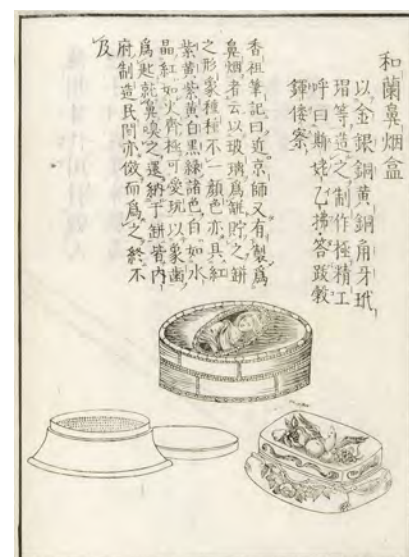 和蘭鼻烟盒
以金銀銅黃銅角牙玳
瑁等造之制作極精工
呼曰斯姥乙拂答跋穀
倭
香祖筆記曰近京師又有製為
鼻烟者云以玻璃為缾貯之缾
之形象種種不一顏色亦具紅
紫黃紫黃白黑綠諸色白如水
晶紅如火齊極可愛玩以象齒
為匙就鼻嗅之還納于缾皆內
府制造民間亦倣而為之終不
及